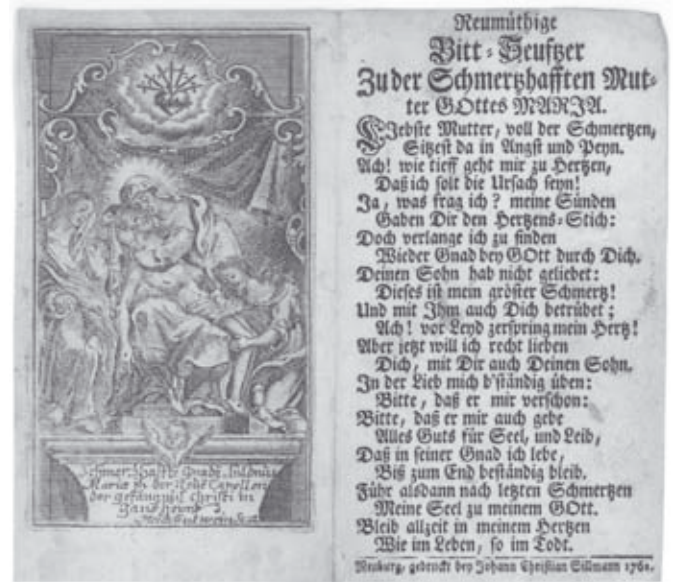 Schmertzhaffte Gnaden bildnus
Mariæ in der
der gefängnuß Christi in
Reumüthige
Bitt-Seufftzer
Zu der Schmertzhafften Mut-
ter GOttes MARJA.
LJebste Mutter, voll der Schmertzen,
Sitzest da in Angst und Peyn.
Ach! wie tieff geht mir zu Hertzen,
Daß ich solt die Ursach seyn!
Ja, was frag ich? meine Sünden
Gaben Dir den Hertzens-Stich:
Doch verlange ich zu finden
Wieder Gnad bey GOtt durch Dich.
Deinen Sohn hab nicht geliebet:
Dieses ist mein gröster Schmertz!
Und mit Jhm auch Dich betrübet;
Ach! vor Leyd zerspring mein Hertz!
Aber jetzt will ich recht lieben
Dich, mit Dir auch Deinen Sohn.
Jn der Lieb mich b'ständig üben:
Bitte, daß er mir verschon:
Bitte, daß er mir auch gebe
Alles Guts für Seel, und Leib,
Daß in seiner Gnad ich lebe,
Biß zum End beständig bleib.
Führ alsdann nach letzten Schmertzen
Meine Seel zu meinem GOtt.
Bleib allzeit in meinem Hertzen
Wie im Leben, so im Todt.
Neuburg, gedruckt bey Johann Christian Sillmann